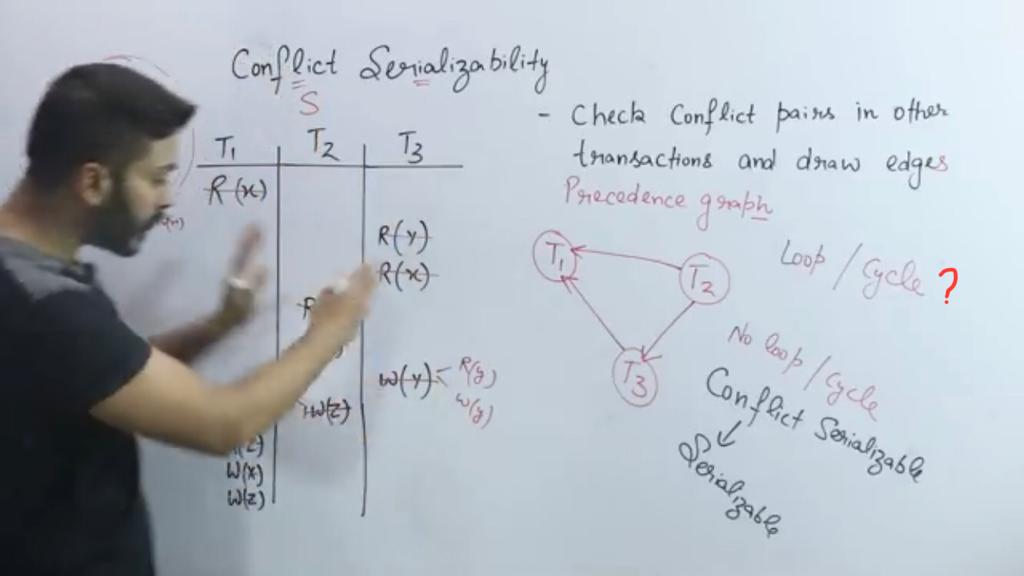 Conflict Serializability
S
T1 T2 T3
R(x)
R(y)
R(x)
W(y) R(y)
W(y)
W(z)
W(x)
W(z)
- Check Conflict pairs in other
transactions and draw edges
Precedence graph
T1 T2
T3
Loop / Cycle ?
No loop / Cycle
Conflict Serializable
Serializable